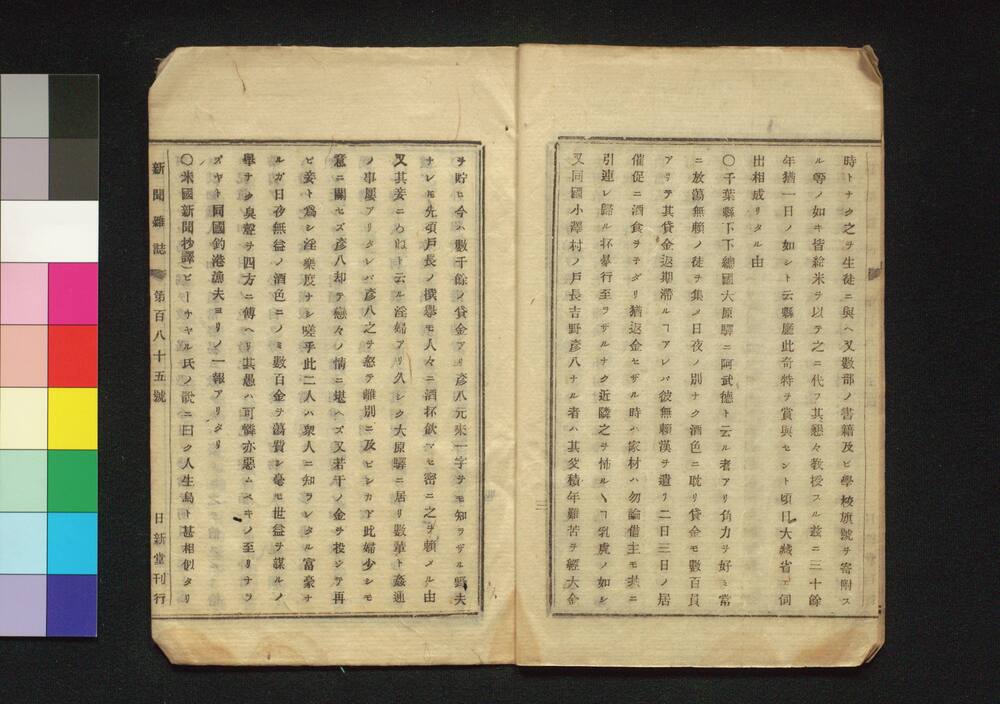 時トナク之ヲ生徒ニ與ヘ又數部ノ書籍及ビ學校旗號ヲ寄附ス
ル等ノ如キ皆給米ヲ以テ之ニ代フ其懇々敎授スル玆ニ三十餘
年猶一日ノ如シト云縣廳此奇特ヲ賞與セント頃日大藏省エ伺
出相成リタル由
〇千葉縣下下總國大原驛ニ阿武德ト云ル者アリ角力ヲ好ミ常
ニ放蕩無賴ノ徒ヲ集メ日夜ノ別ナク酒色ニ耽リ貸金モ數百員
アリテ其貸金返期滯ルヿアレバ彼無賴漢ヲ遣リ二日三日ノ居
催促ニ酒食ヲネダリ猶返金セザル時ハ家材ハ勿論借主モ共ニ
引連レ歸ル抔暴行至ラザルナク近隣之ヲ怖ルヽヿ乳虎ノ如シ
又同國小澤村ノ戶長吉野彥八ナル者ハ其父積年難苦ヲ經大金
ヲ貯ヒ今ハ數千餘ノ貸金アリ彥八元來一字サモ知ラザル野夫
ナレモ先頃戶長ノ撰擧モ人々ニ酒杯飮マセ密ニ之ヲ賴メル由
又其妾ニ云ル淫婦アリ久シク大原驛ニ居リ數輩ト姦通
ノ事屢アリタレバ彥八之ヲ怒テ離別ニ及ビシカド此婦少シモ
意ニ關セズ彥八却テ戀々ノ情ニ堪ヘズ又若干ノ金ヲ投ジテ再
ビ妾ト爲シ淫樂度ナシ嗟乎此二人ハ衆人ニ知ラレタル富豪ナ
ルガ日夜無益ノ酒色ニノミ數百金ヲ蕩費シ毫モ世益ヲ謀ルノ
擧ナク臭聲ヲ四方ニ傳ヘリ其愚ハ可憐亦惡ムベキノ至リナラ
ズヤト同國釣港漁夫ヨリノ一報アリタリ
〇米國新聞抄譯)ビーチャル氏ノ說ニ曰ク人生島ト甚相似タリ
新聞雜誌 第百八十五號 日新堂刊行
三